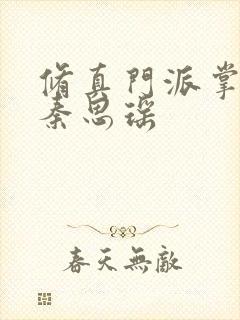 脩真門派掌
秦思瑶
春天無敵